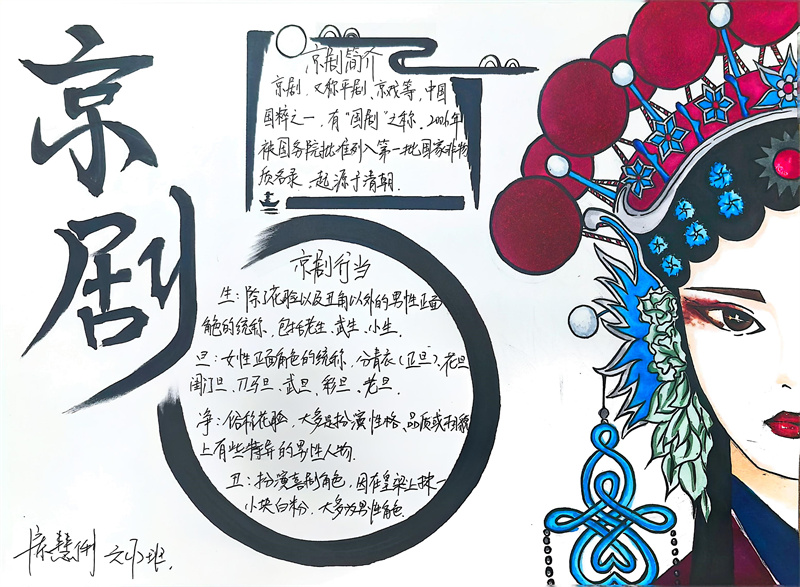 京剧
京剧简介
京剧，又称平剧、京戏等，中国
国粹之一，有“国剧”之称，2006年
被国务院批准列入第一批国家非物
质名录，起源于清朝．
京剧行当
生：除了花脸以及丑角以外的男性正面
角色的统称，包括老生、武生、小生．
旦：女性正面角色的统称，分青衣（正旦）、花旦
闺门旦、刀马旦、武旦、彩旦、老旦．
净：俗称花脸，大多是扮演性格、品质或相貌
上有些特异的男性人物．
丑：扮演喜剧角色，因在鼻梁上抹一
小块白粉，大多为男性角色．
慧 班．